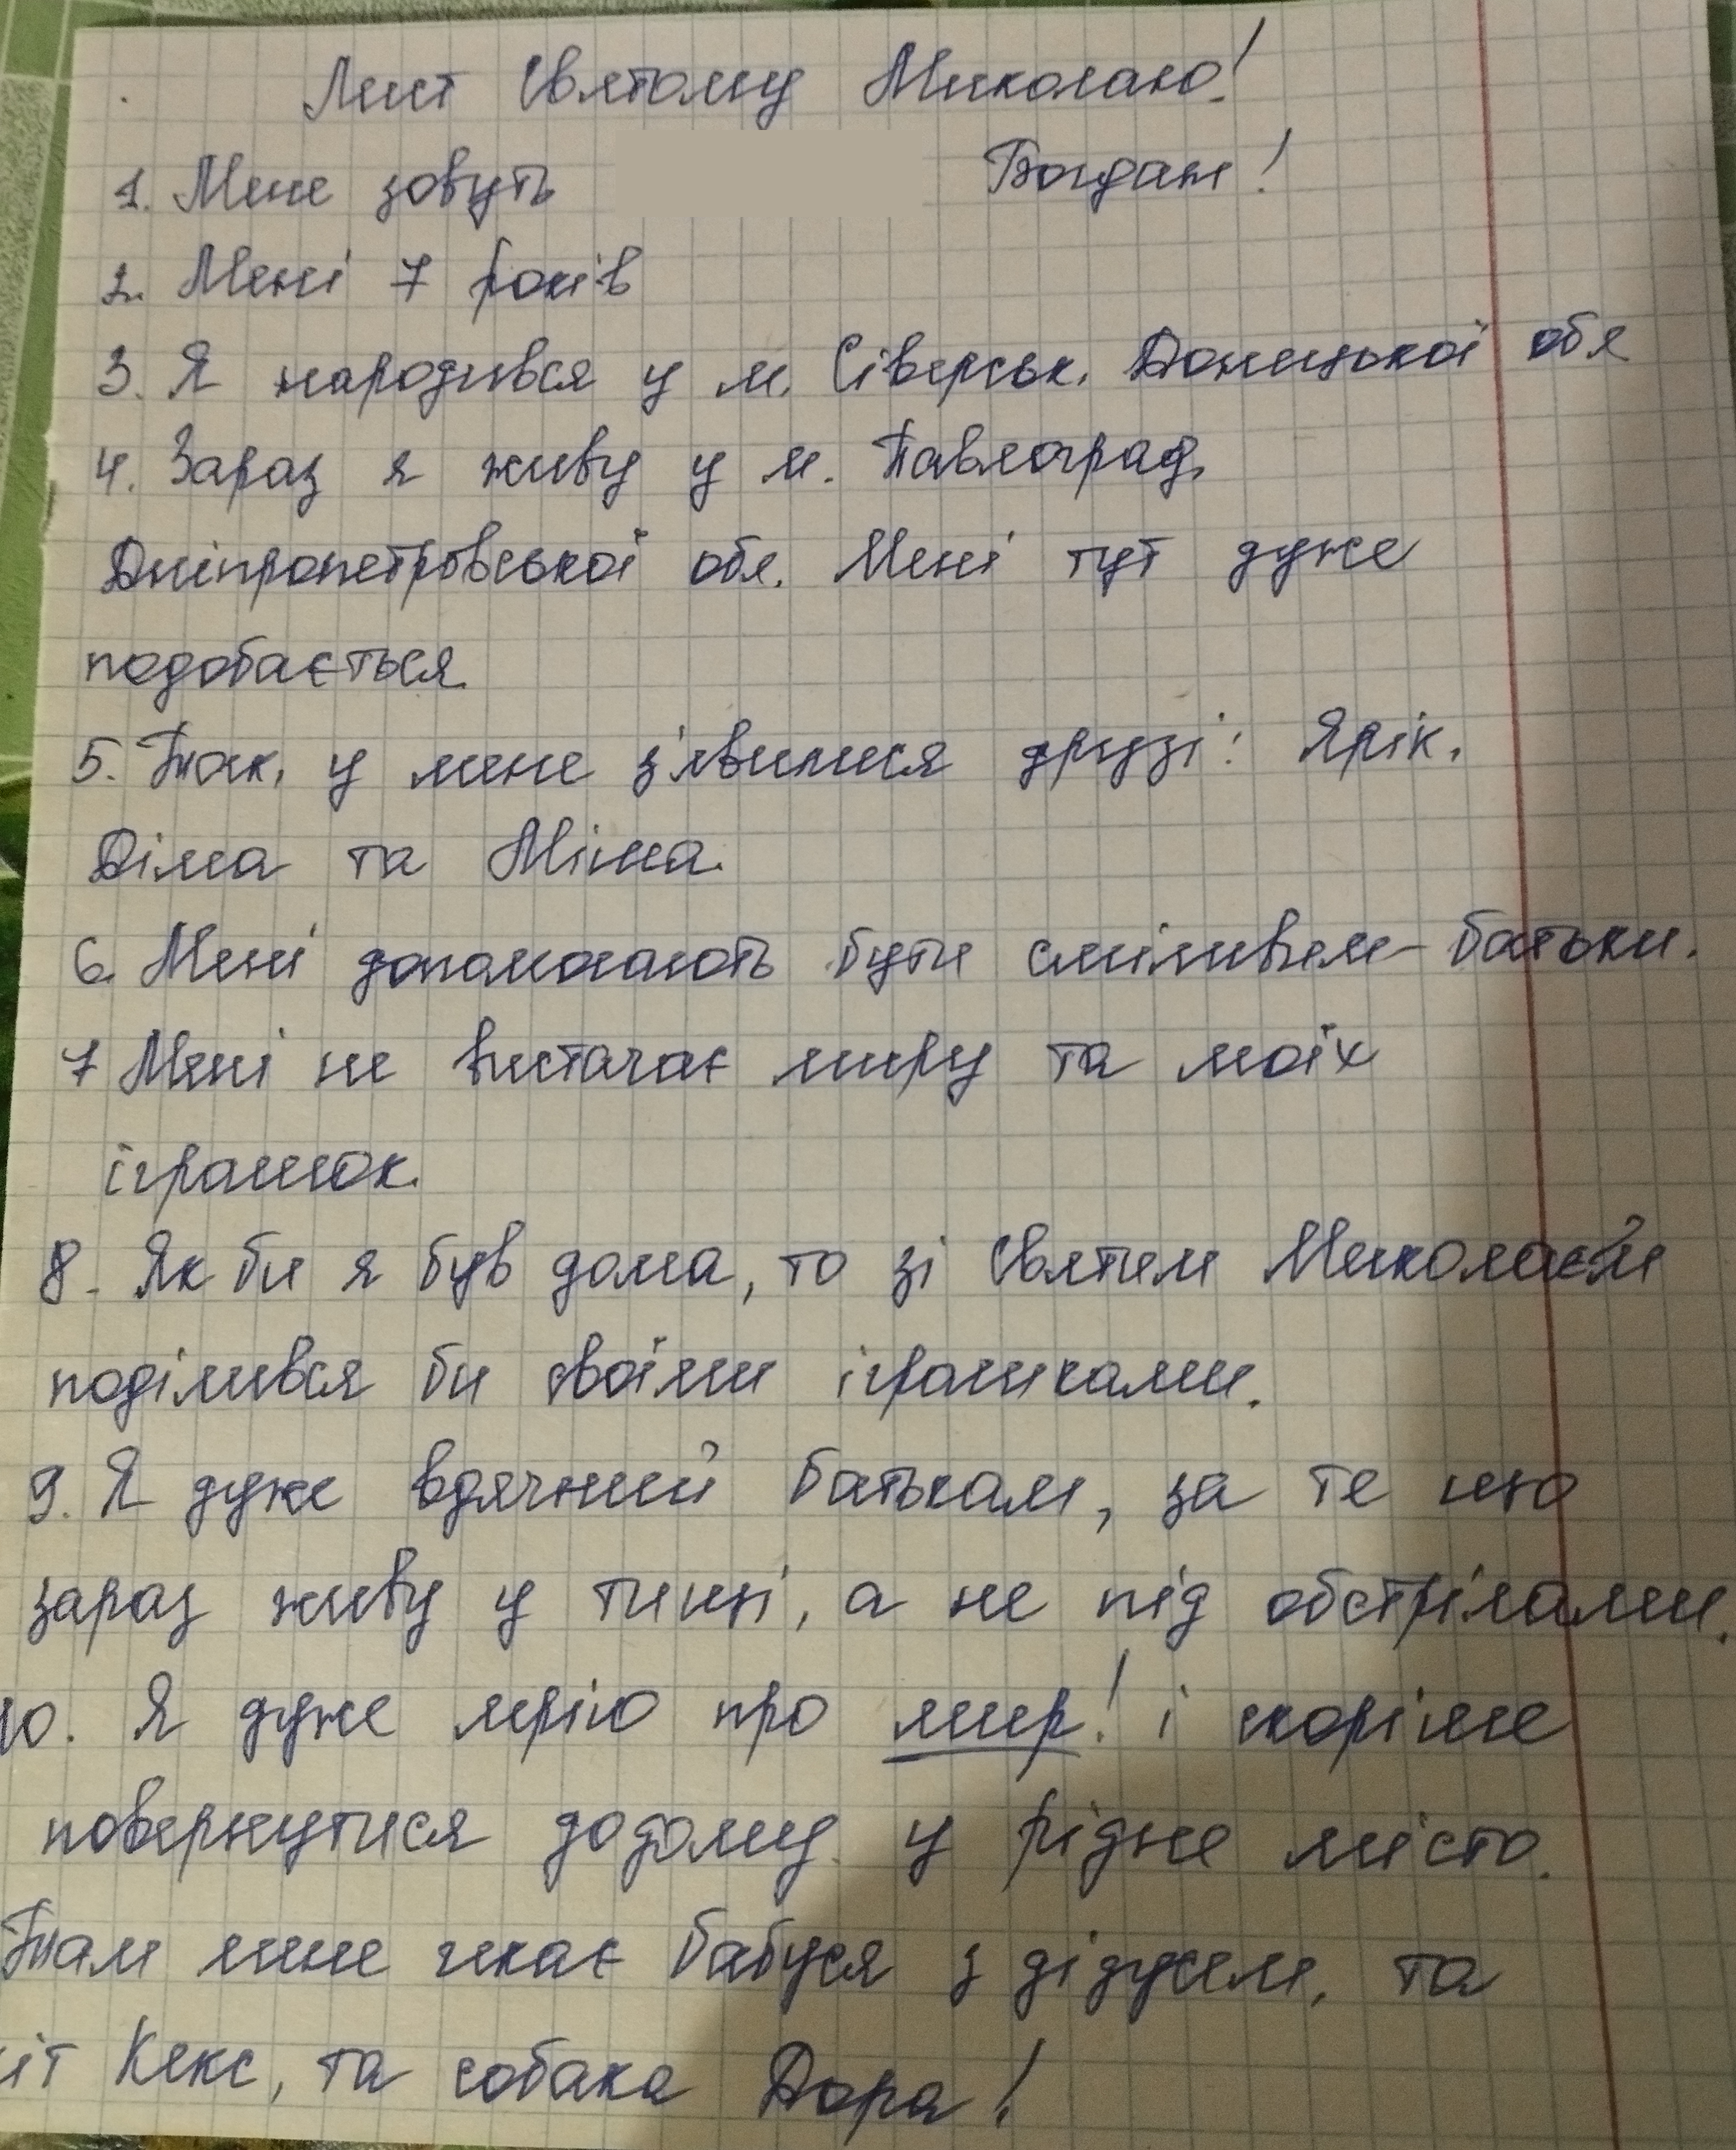 Лист Святому Миколаю!
1. Мене зовуть Богдан!
2. Мені 7 років
3. Я народився у м. Сіверськ. Донецької обл
4. Зараз я живу у м. Павлоград,
Дніпропетровської обл. Мені тут дуже
подобається.
5. Так, у мене з'явилися друзі: Ярік,
Діма та Міша.
6. Мені допомагають бути сміливим - батьки.
7 Мені не вистачає миру та моїх
іграшок.
8. Як би я був дома, то зі Святим Миколаєм
поділився би своїми іграшками.
9. Я дуже вдячний батькам, за те що
зараз живу у тишці, а не під обстрілами.
10. Я дуже мрію про мир! і скоріше
повернутися додому у рідне місто.
Там мене чекає бабуся з дідусем, та
кіт Кекс, та собака Дора!